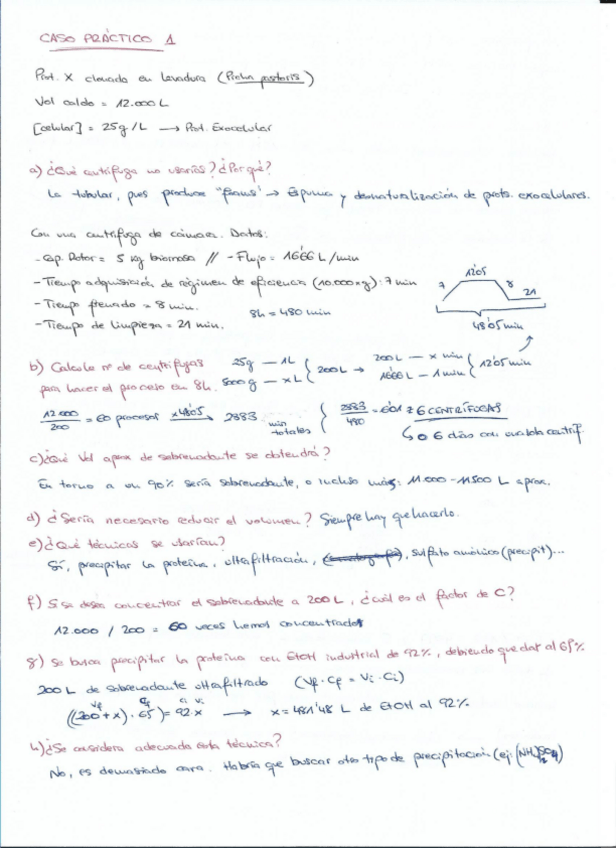 CASO PRÁCTICO 1
Prot. X clonada en levadura (Pichia pastoris)
Vol caldo = 12.000 L
[celular] = 25g/L → Prot. Exocelular
a) ¿Qué centrífuga no usarías? ¿Por qué?
La tubular, pues produce "foams" → Espuma y desnaturalización de prots. exocelulares.
Con una centrífuga de cámara. Datos:
- Cap. Rotor = 5 kg biomasa // - Flujo = 16'66 L/min
- Tiempo adquisición de régimen de eficiencia (10.000xg): 7 min
- Tiempo frenado = 8 min.
8h = 480 min
- Tiempo de limpieza = 21 min.
7 12'05 8 21
48'05 min
b) Calcule nº de centrífugas para hacer el proceso en 8h.
25g — 1L
5000g — xL
200L
200L — x min
16'66L — 1 min
12'05 min
12000/200 = 60 procesos x48'05 → 2883 min totales
2883/480 = 6'01 ≈ 6 CENTRÍFUGAS
↳ o 6 días con una sola centríf.
c) ¿Qué Vol aprox de sobrenadante se obtendrá?
En torno a un 90% sería sobrenadante, o incluso más: 11.000 - 11.500 L aprox.
d) ¿Sería necesario reducir el volumen? Siempre hay que hacerlo.
e) ¿Qué técnicas se usarían?
Sí, precipitar la proteína, ultrafiltración, sulfato amónico (precipit)...
f) Si se desea concentrar el sobrenadante a 200L, ¿cuál es el factor de C?
12.000 / 200 = 60 veces hemos concentrado
g) Se busca precipitar la proteína con EtOH industrial de 92%, debiendo quedar al 65%
200 L de sobrenadante ultrafiltrado (Vf · Cf = Vi · Ci)
Vf Cf Ci Vi
((200+x) · 65) = 92·x → x = 481'48 L de EtOH al 92%
h) ¿Se considera adecuada esta técnica?
No, es demasiado cara. Habría que buscar otro tipo de precipitación (ej: (NH4)2SO4)